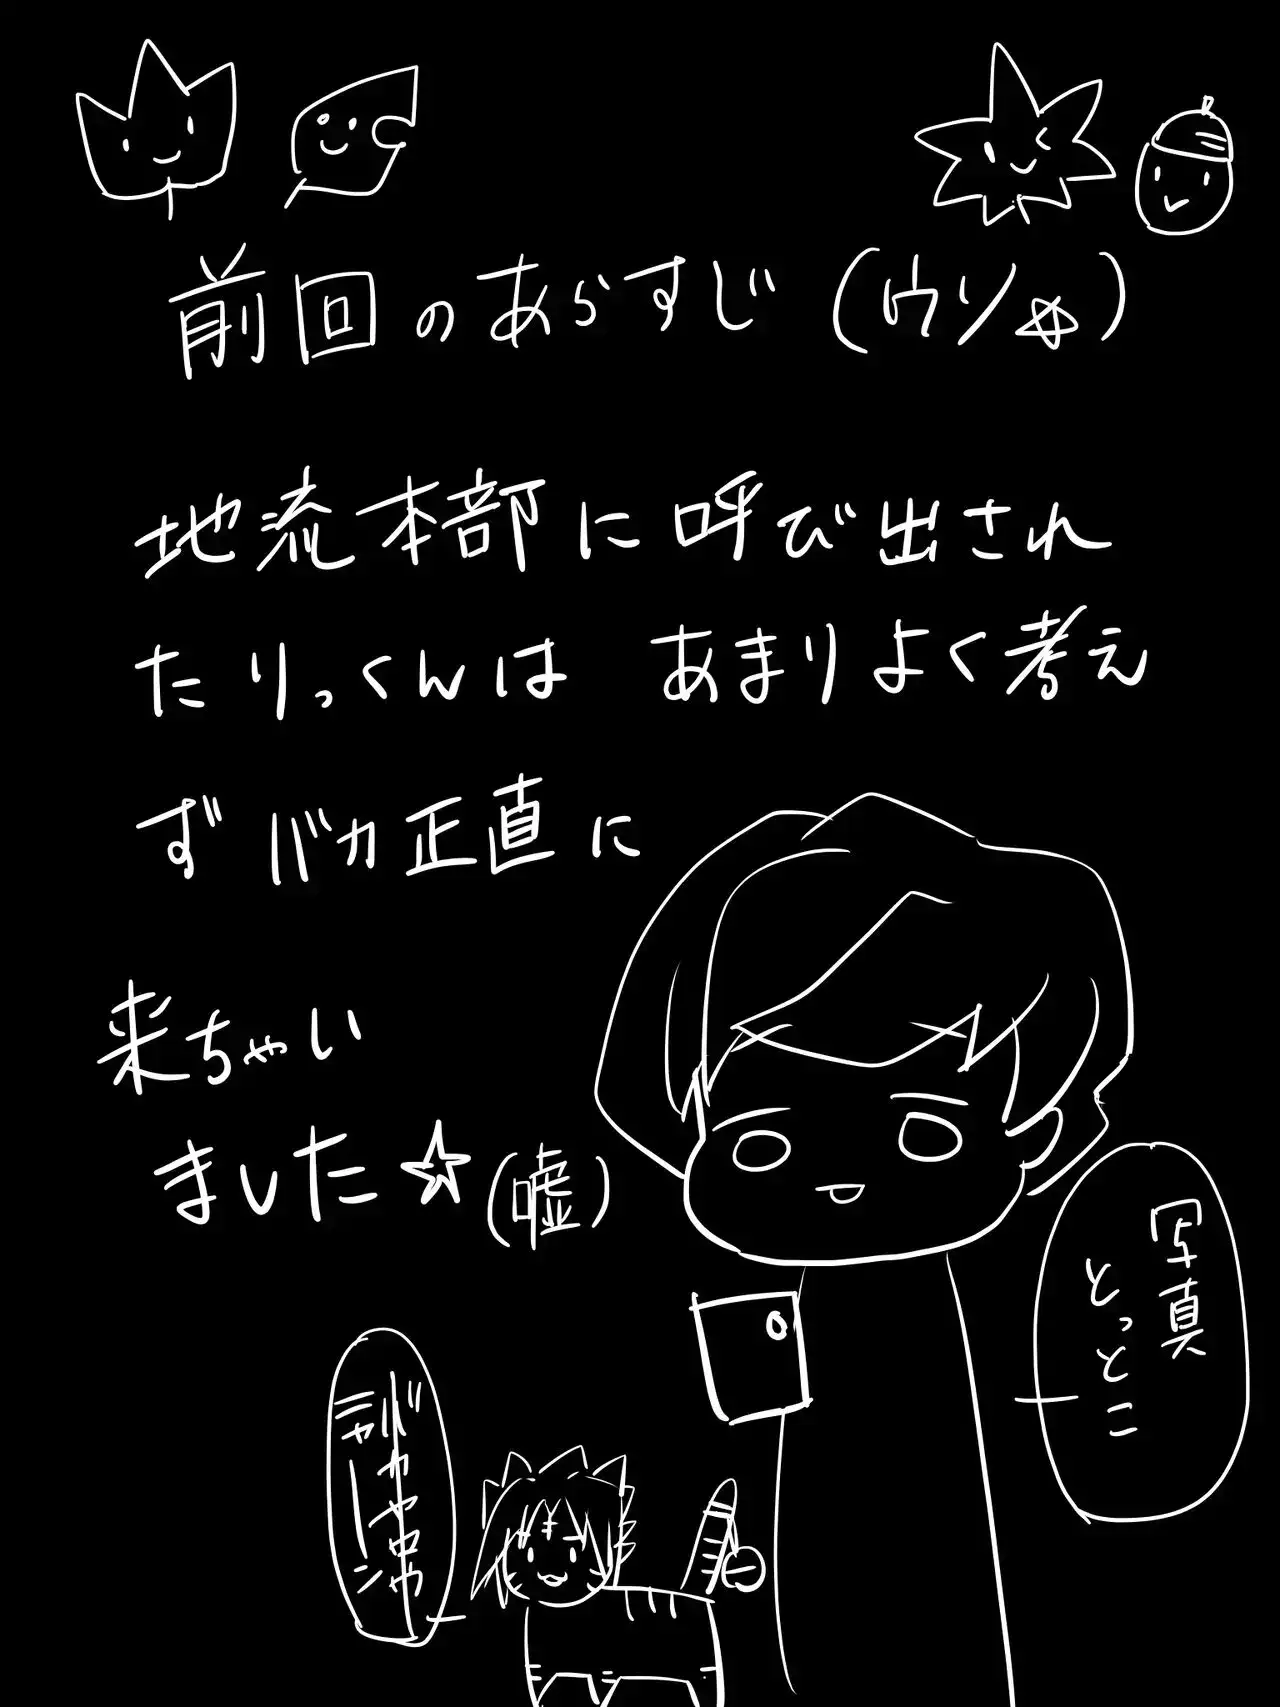 前回のあらすじ(ウソ☆)
地流本部に呼び出され
たりっくんは あまりよく考え
ずバカ正直に
来ちゃい
ました☆(嘘)
写真
とっとこ